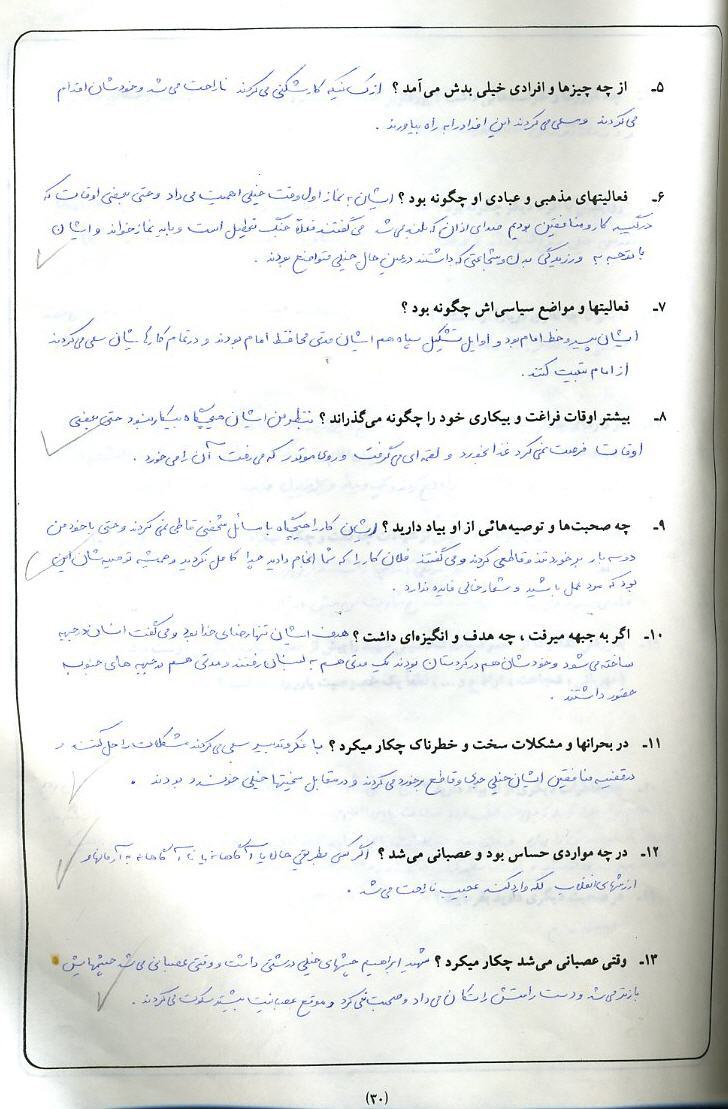 ۵ـ از چه چیزها و افرادی خیلی بدش می‌آمد ؟ از کسانیکه کارشکنی می‌کردند ناراحت می شد و خودشان اقدام
می کردند و سعی می کردند این افراد را به راه بیاورند .
۶ـ فعالیتهای مذهبی و عبادی او چگونه بود ؟ ایشان به نماز اول وقت خیلی اهمیت می داد و حتی بعضی اوقات که
درگیر کار و منافقین بودیم صدای اذان که بلند می شد می گفتند فعلاً جنگ تعطیل است و باید نماز خواند و ایشان
با توجه به ورزیدگی بدن و شجاعتی که داشتند در عین حال خیلی متواضع بودند .
۷ـ فعالیتها و مواضع سیاسی‌اش چگونه بود ؟
ایشان پیرو خط امام بود و اوایل تشکیل سپاه هم ایشان مدتی محافظ امام بودند و در تمام کارهایشان سعی می کردند
از امام تبعیت کنند .
۸ـ بیشتر اوقات فراغت و بیکاری خود را چگونه می‌گذراند ؟ بنظر من ایشان هیچگاه بیکار نبود حتی بعضی
اوقات فرصت نمی کرد غذا بخورد و لقمه ای می گرفت و روی موتور که می رفت آن را می خورد .
۹ـ چه صحبت‌ها و توصیه‌هائی از او بیاد دارید ؟ ایشان کار را هیچگاه با مسائل شخصی قاطی نمی کردند و حتی با خود من
دو سه بار برخورد تند و قاطعی کردند و می گفتند فلان کار را که شما انجام دادید چرا کامل نکردید و همیشه توصیه شان این
بود که مرد عمل باشید و شعار خالی فایده ندارد .
۱۰ـ اگر به جبهه میرفت ، چه هدف و انگیزه‌ای داشت ؟ هدف ایشان تنها رضای خدا بود و می گفت انسان در جبهه
ساخته می شود و خودشان هم در کردستان بودند یک مدتی هم به لبنان رفتند و مدتی هم در جبهه های جنوب
حضور داشتند .
۱۱ـ در بحرانها و مشکلات سخت و خطرناک چکار میکرد ؟ با فکر و تدبیر سعی می کردند مشکلات را حل کنند و
در قضیه منافقین ایشان خیلی جدی و قاطع برخورد می کردند و در مقابل سختیها خیلی خونسرد بودند .
۱۲ـ در چه مواردی حساس بود و عصبانی می‌شد ؟ اگر کسی بطریقی حالا یا آگاهانه یا ناآگاهانه به آرمانها و
ارزشهای انقلاب لگه وارد کند عجیب ناراحت می شد .
۱۳ـ وقتی عصبانی می‌شد چکار میکرد ؟ شهید ابراهیم چشمهای خیلی درشتی داشت و وقتی عصبانی می شد چشمهایش
بازتر می شد و دست راستش را تکان می داد و صحبت نمی کرد و موقع عصبانیت بیشتر سکوت می کردند .
(۳۰)